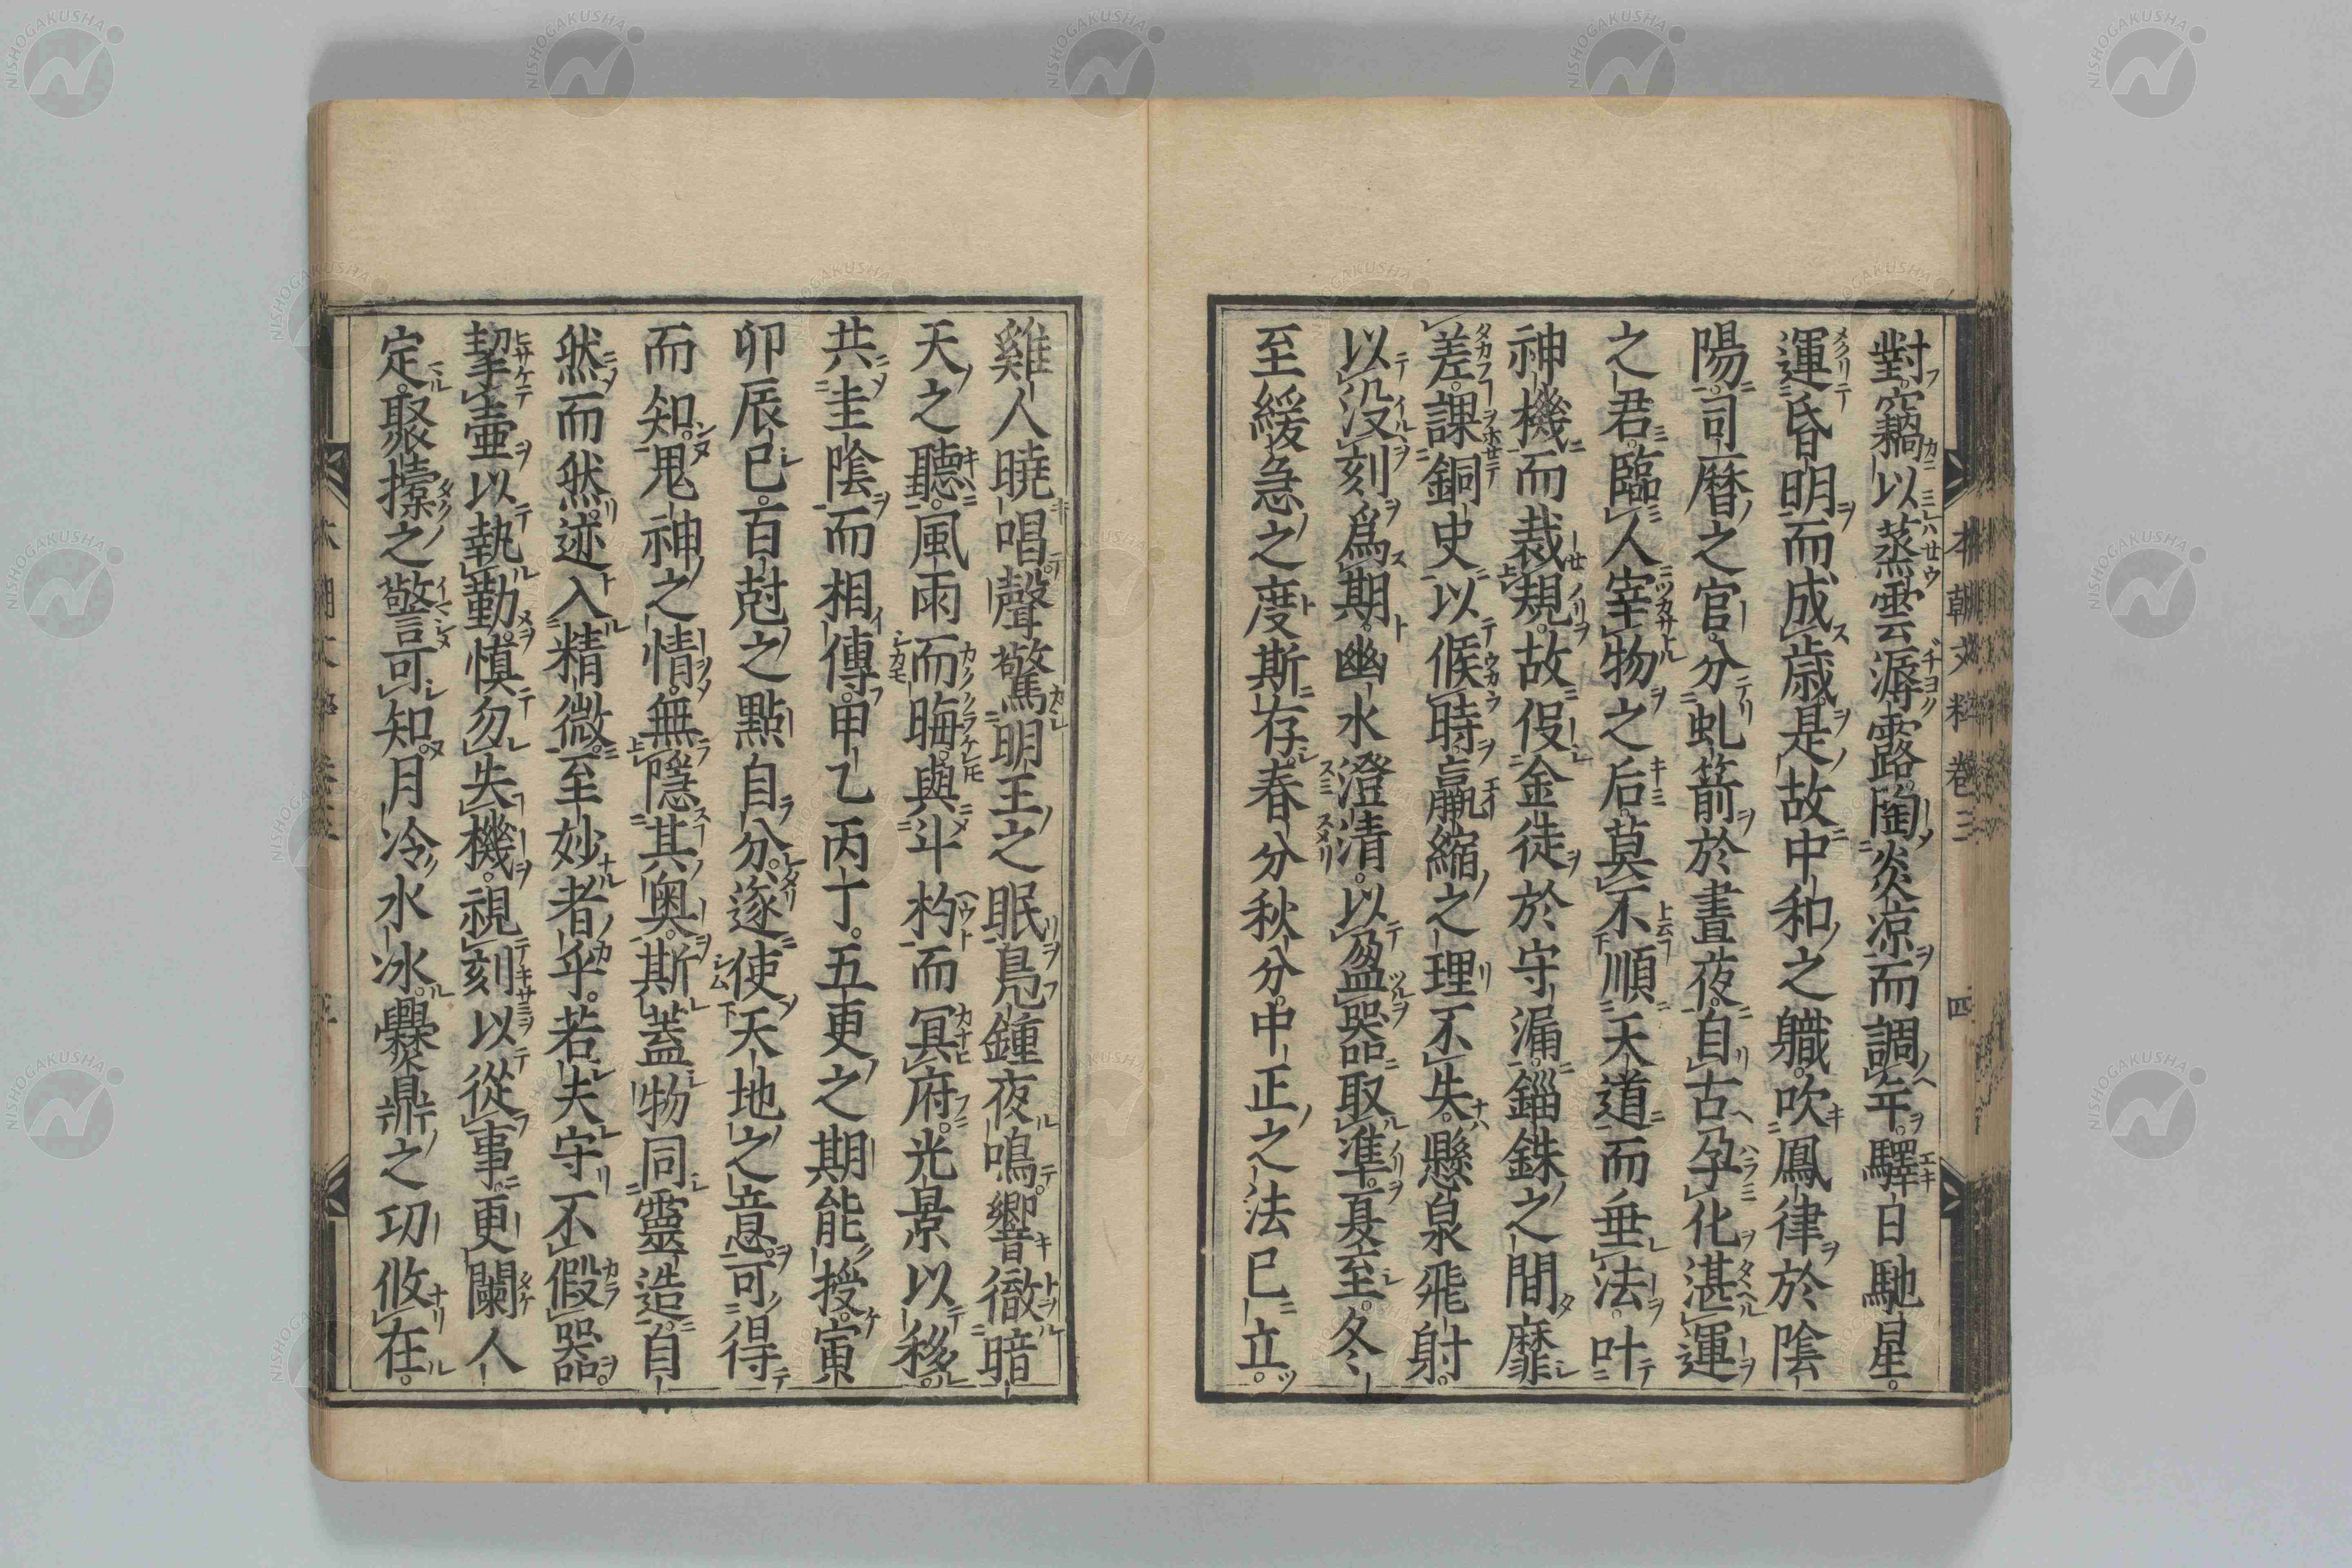 對。竊以蒸雲溽露。陶炎凉而調年。驛日馳星。
運昏明而成歳。是故中和之職。吹鳳律於陰
陽。司暦之官。分虬箭於晝夜。自古孕化湛運
之君。臨人宰物之后。莫不順天道而垂法。叶
神機而裁規。故伇金徒於守漏。錙銖之間靡
差。課銅史以候時。贏縮之理不失。懸泉飛射。
以没刻爲期。幽水澄清。以盈器取準。夏至冬
至緩急之度斯存。春分秋分。中正之法已立。
本朝文粹卷三 四
雞人曉唱。聲驚明王之眠。鳧鐘夜鳴。響徹暗
天之聽。風雨而晦。與斗杓而冥府。光景以移。
共圭陰而相傳。甲乙丙丁。五更之期能授。寅
卯辰巳。百尅之點自分。遂使天地之意。可得
而知。鬼神之情。無隱其奥。斯蓋物同靈造。自
然而然。迹入精微。至妙者乎。若夫守不假器。
挈壷以執勤。愼勿失機。視刻以從事。更闌人
定。聚㯱之警可知。月冷水冰。爨鼎之功攸在。